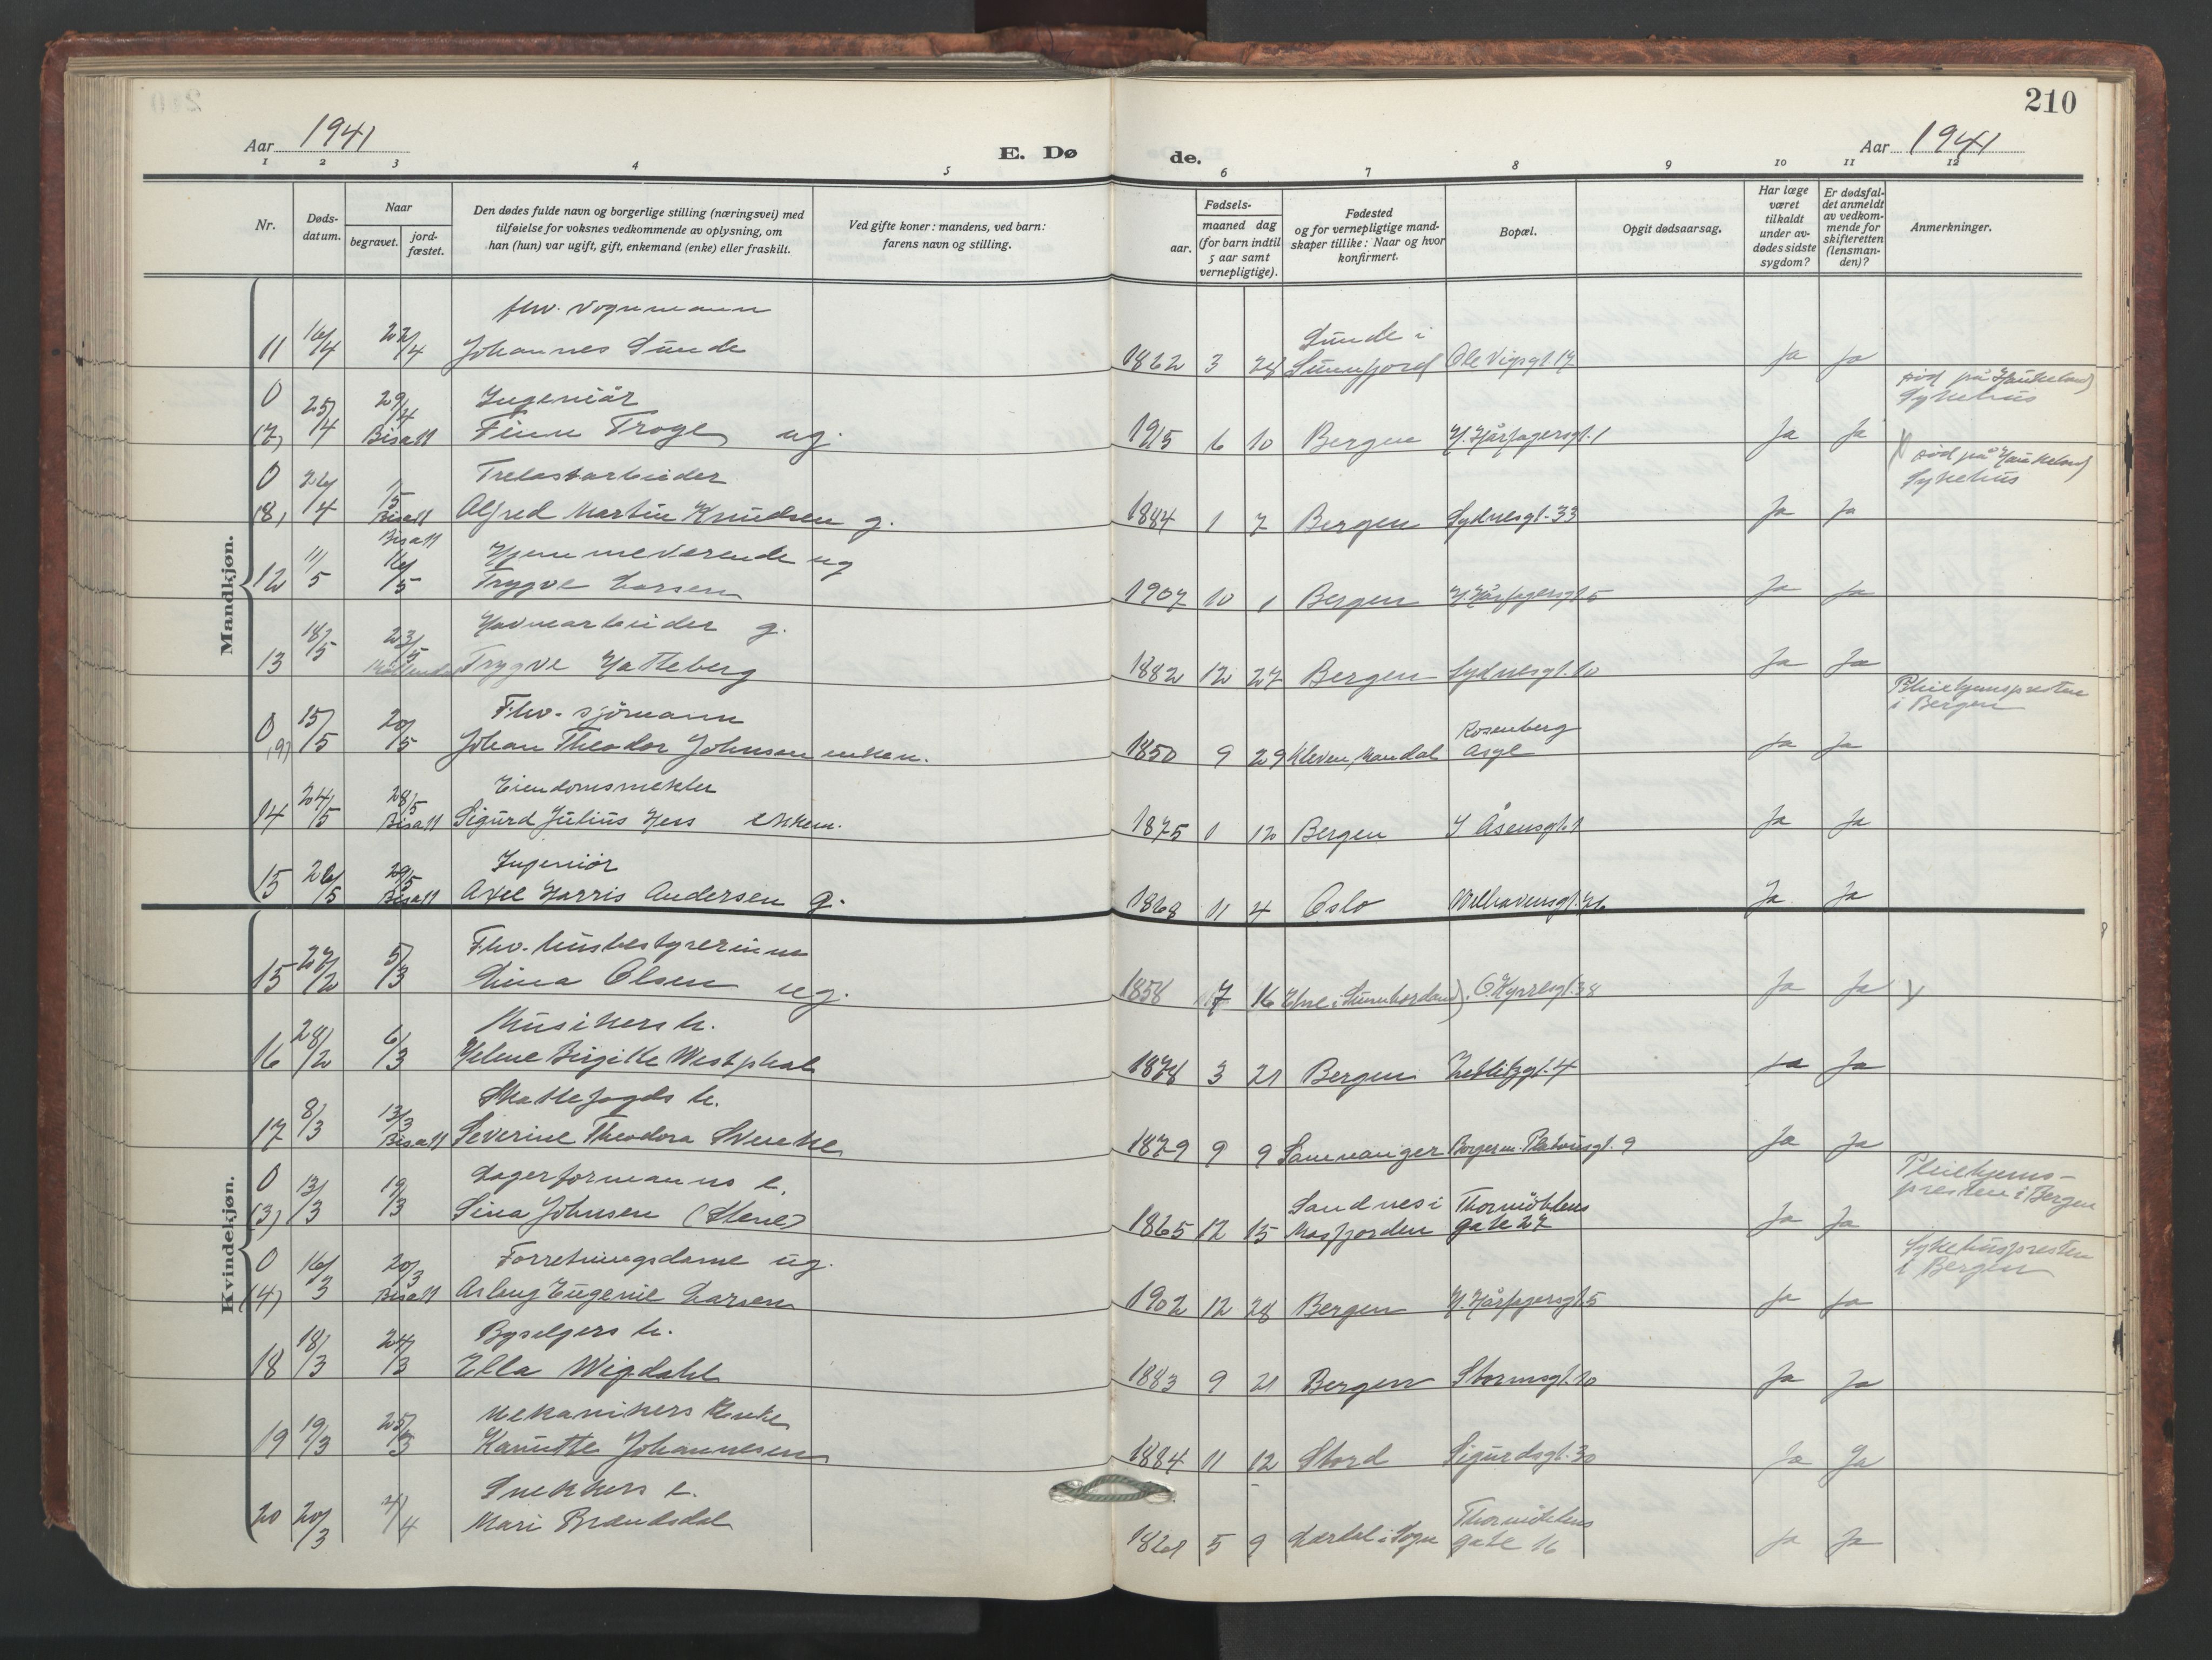 210
Aar 1941
E. Dø
de.
Aar 1941
1 2 3 4 5 6 7 8 9 10 11 12
Nr.
Døds-
datum.
Naar
begravet.
jord-
fæstet.
Den dødes fulde navn og borgerlige stilling (næringsvei) med
tilføielse for voksnes vedkommende av oplysning, om
han (hun) var ugift, gift, enkemand (enke) eller fraskilt.
Ved gifte koner: mandens, ved barn:
farens navn og stilling.
Fødsels-
aar.
maaned dag
(for barn indtil
5 aar samt
vernepligtige).
Fødested
og for vernepligtige mand-
skaper tillike: Naar og hvor
konfirmert.
Bopæl.
Opgit dødsaarsag.
Har læge
været
tilkaldt
under av-
dødes sidste
sygdom?
Er dødsfal-
det anmeldt
av vedkom-
mende for
skifteretten
(lensman-
den)?
Anmerkninger.
Mandkjøn.
fhv. vognmann
11 16/4 22/4 Johannes Sunde 1862 3 28 Sunde i Sunnfjord Ole Vigsgt. 17 Ja Ja
0 Ingeniör død på Haukeland
(7) 25/4 29/4 Bisatt Finn Troye ug. 1915 6 10 Bergen H. Hårfagersgt. 1 Ja Ja Sykehus
0 Trelastarbeider X død på Haukeland
(8) 26/4 1/5 Bisatt Alfred Martin Knudsen g. 1884 1 7 Bergen Sydnesgt. 33 Ja Ja Sykehus
Bisatt Hjemmeværende ug
12 11/5 16/5 Trygve Larsen 1907 10 1 Bergen H. Hårfagersgt. 5 Ja Ja
Havnearbeider g.
13 18/5 23/5 Trygve Hatleberg 1882 12 27 Bergen Sydnesgt. 10 Ja Ja
0 Fhv. sjömann Rosenberg Pleiehjemspresten
(9) 15/5 20/5 Johan Theodor Johnsen enkem. 1850 9 29 Kleven, Mandal Asyl Ja Ja i Bergen
Eiendomsmekler
14 24/5 28/5 Bisatt Sigurd Julius Hess enkem. 1875 1 12 Bergen I. Åsensgt. 1 Ja Ja
Ingeniör
15 26/5 29/5 Bisatt Axel Harris Andersen g. 1868 11 4 Oslo Welhavensgt. 76 Ja Ja
Kvindekjøn.
Fhv. husbestyrerinne
15 27/2 5/3 Lina Olsen ug. 1858 7 16 Etne i Sunnhordland O. Kyrresgt. 38 Ja Ja X
Musikers h.
16 28/2 6/3 Helene Birgitte Westphal 1878 3 21 Bergen Zetlitzgt. 4 Ja Ja
Skattefogds h.
17 8/3 13/3 Bisatt Severine Theodora 1879 9 9 Samnanger Borgerm. Platousgt. 9 Ja Ja
0 Lagerformanns e. Sandnes i Thormöhlens Pleiehjems-
(3) 13/3 19/3 Sina Johnsen 1865 12 15 Masfjorden gate 27 Ja Ja presten i Bergen
0 Forretningsdame ug. Sykehuspresten
(4) 16/3 20/3 Bisatt Aslaug Eugenie Larsen 1902 12 28 Bergen H. Hårfagersgt. 5 Ja Ja i Bergen
Byselgers h.
18 18/3 24/3 Ella Wigdahl 1883 9 21 Bergen Stormsgt. 10 Ja Ja
Mekanikers enke
19 19/3 25/3 Johannesen 1884 11 12 Stord Sigurdsgt. 30 Ja Ja
Snekkers e. Thormöhlens
20 20/3 4/4 Mari Brændsdal 5 9 i Sogn gate 16 Ja Ja